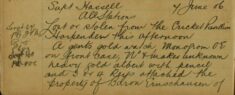 Supt Hassell 4 June 06
All Station
Lost or stolen from the Cricket Pavilion
Harpenden this afternoon
A gents gold watch Monogram OS
on front case, No & maker unknown
heavy gold albert with pencil
and 3 or 4 Keys attached the
property of Baron